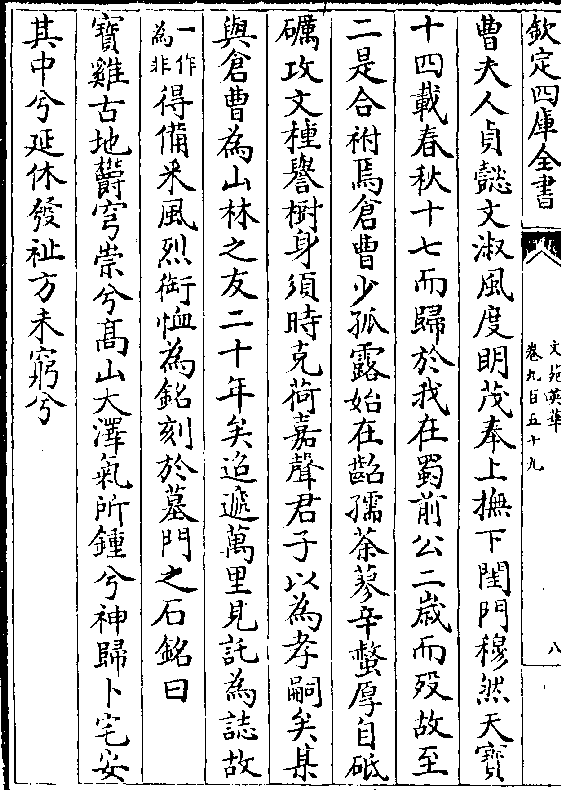 欽定四庫全書
文苑英華
卷九百五十九
八
曹夫人貞懿文淑風度明茂奉上撫下閨門穆然天寶
十四載春秋十七而歸於我在蜀前公二歲而殁故至
二是合祔焉倉曹少孤露始在齠孺荼蓼辛螫厚自砥
礪攻文種譽樹身須時克荷嘉聲君子以為孝嗣矣某
與倉曹為山林之友二十年矣迢遞萬里見託為誌故
一作
為非
得備采風烈銜恤為銘刻於墓門之石銘曰
寶雞古地欝穹崇兮髙山大澤氣所鍾兮神歸卜宅安
其中兮延休發祉方未窮兮